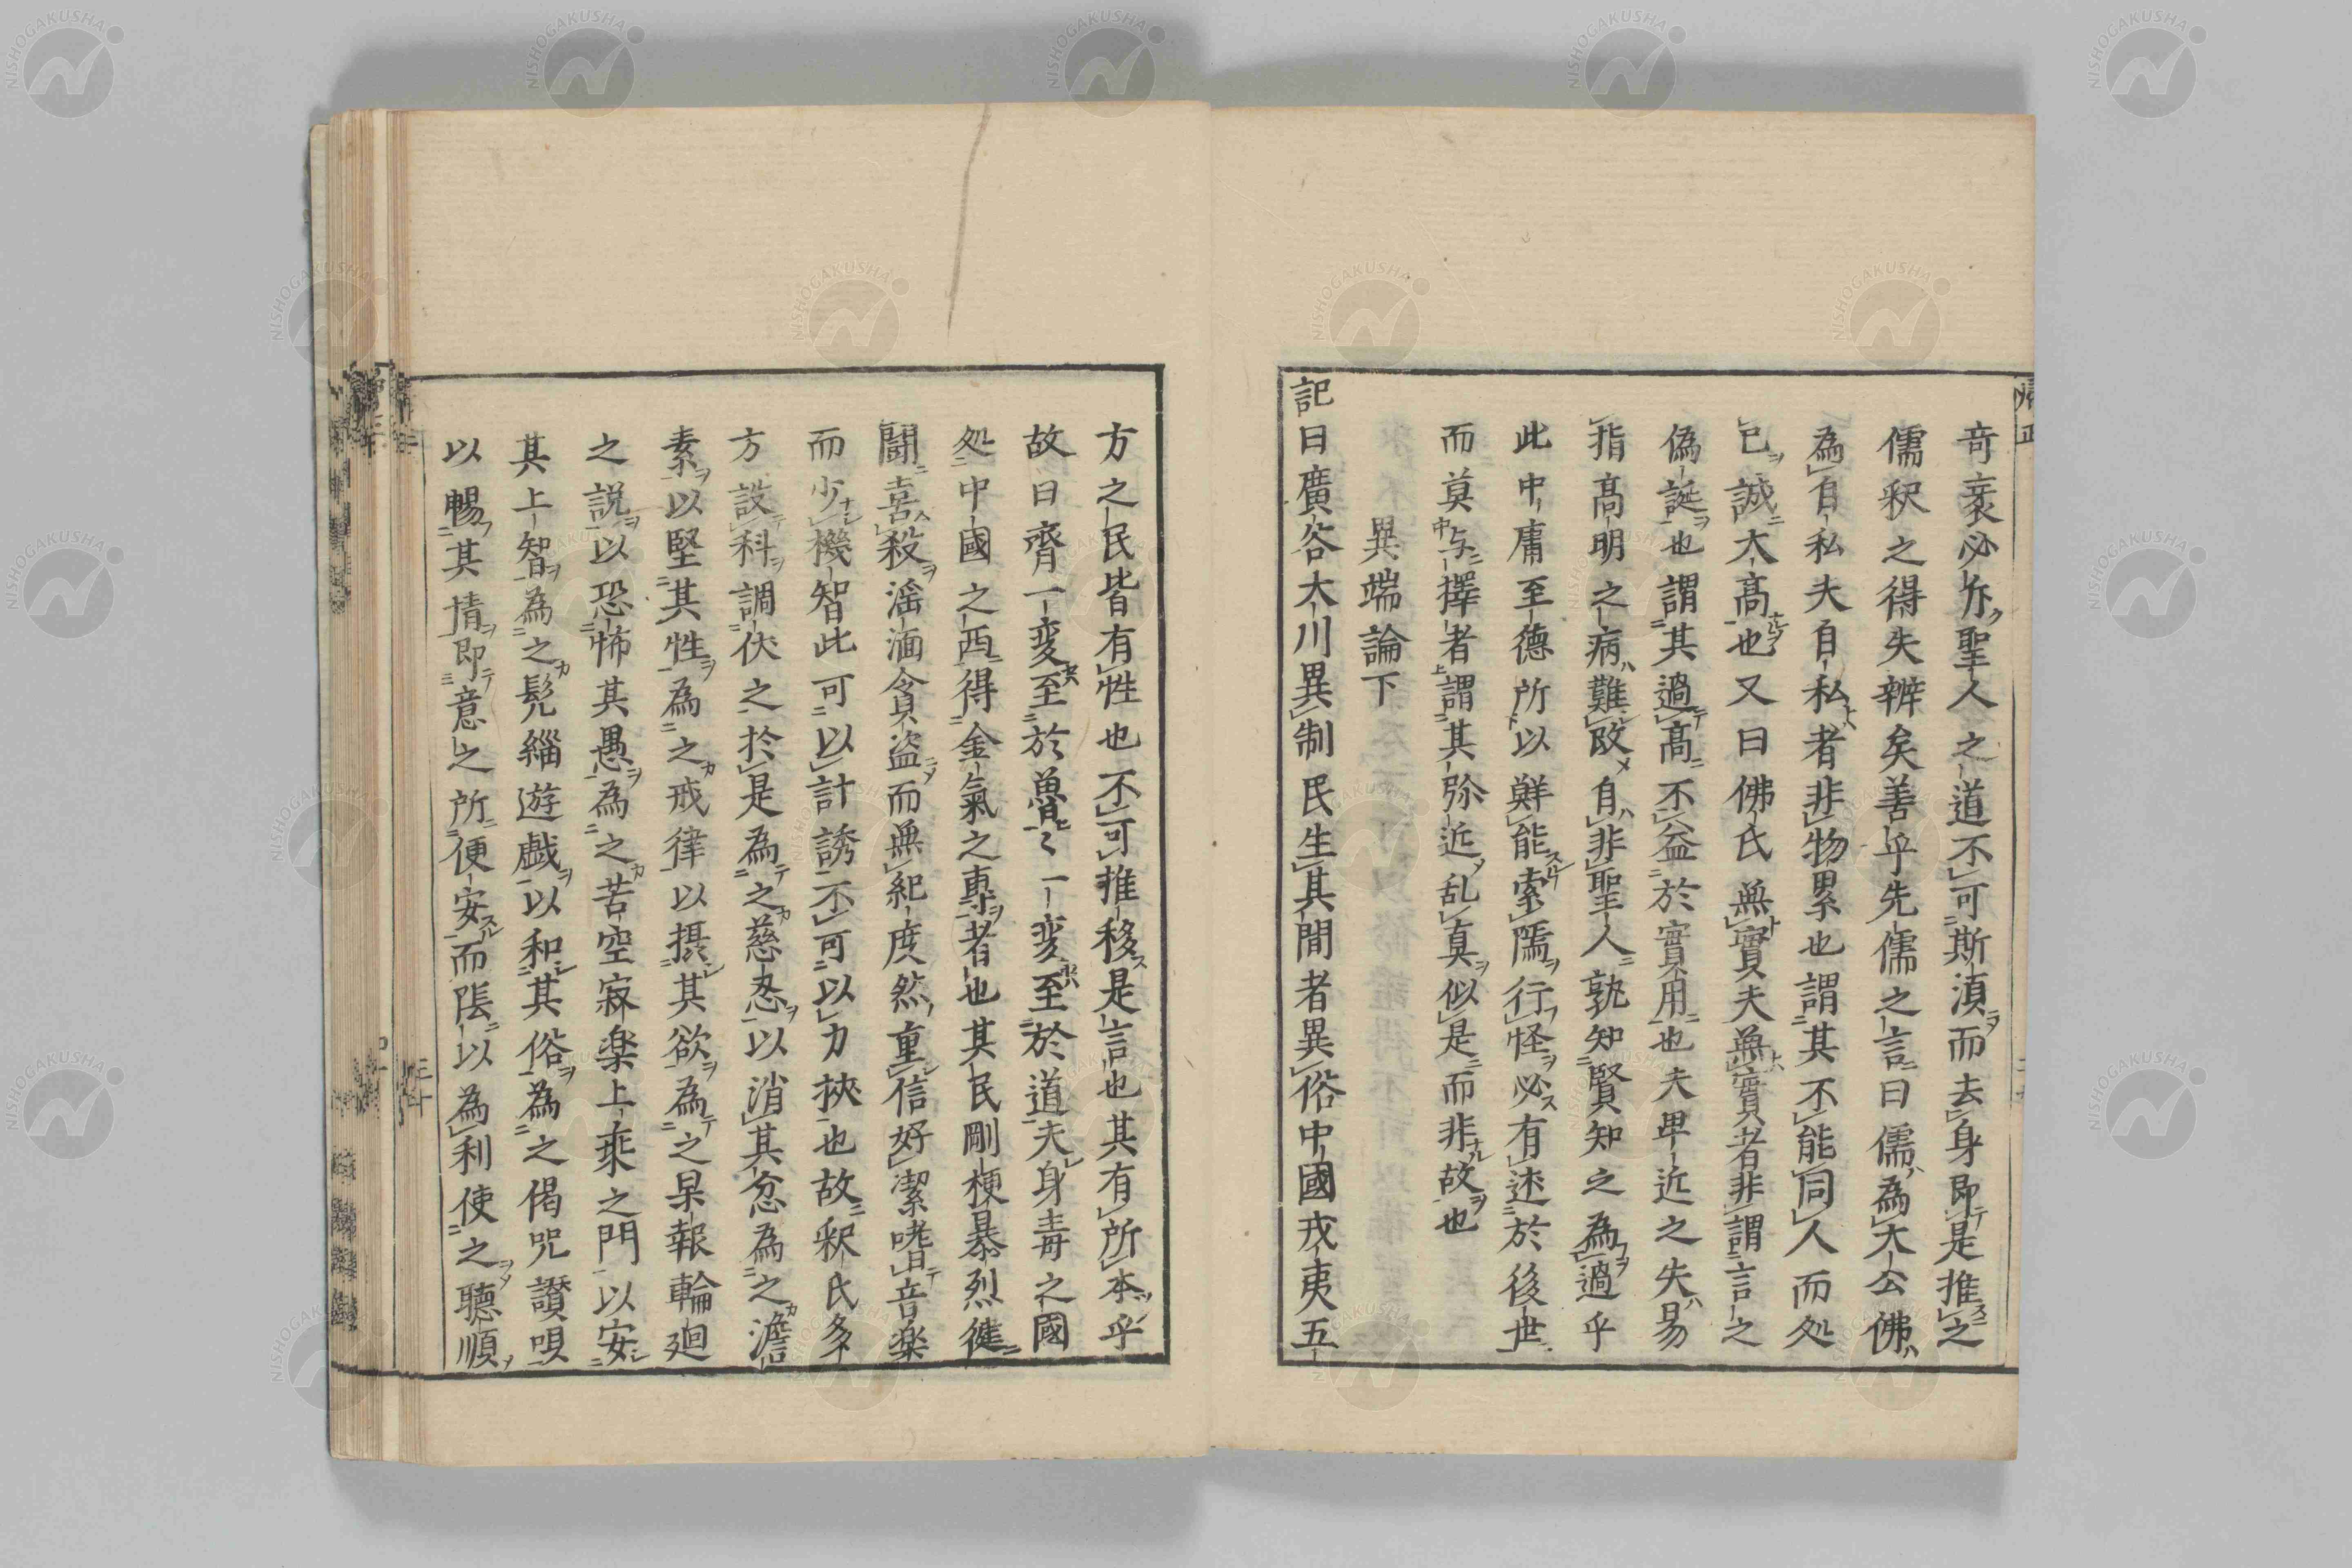 竒衺必斥聖人之道不可斯湏而去身即是推之
儒釈之得失辨矣善乎先儒之言曰儒為大公佛
為自私夫自私者非物累也謂其不能同人而処
已誠太高也又曰佛氏無實夫無實者非謂言之
偽誕也謂其過高不益於實用也夫卑近之失易
指高明之病難改自非聖人孰知賢知之為過乎
此中庸至德所以鮮能索隱行怪必有述於後世
而莫与擇者謂其弥近乱真似是而非故也
異端論下
記曰廣谷大川異制民生其間者異俗中國戎夷五
方之民皆有性也不可推移是言也其有所本乎
故曰齊一変至於魯〻一変至於道夫身毒之國
処中國之西得金氣之專者也其民剛梗暴烈健
鬪喜殺滛湎貪盗而無紀度然重信好潔嗜音楽
而少機智此可以計誘不可以力挾也故釈氏多
方設科調伏之於是為之慈忍以消其忿為之澹
素以堅其性為之戒律以摂其欲為之杲報輪廻
之説以恐怖其愚為之苦空寂楽上乗之門以安
其上智為之髠緇遊戯以和其俗為之偈咒讃唄
以暢其情即意之所便安而張以為利使之聽順